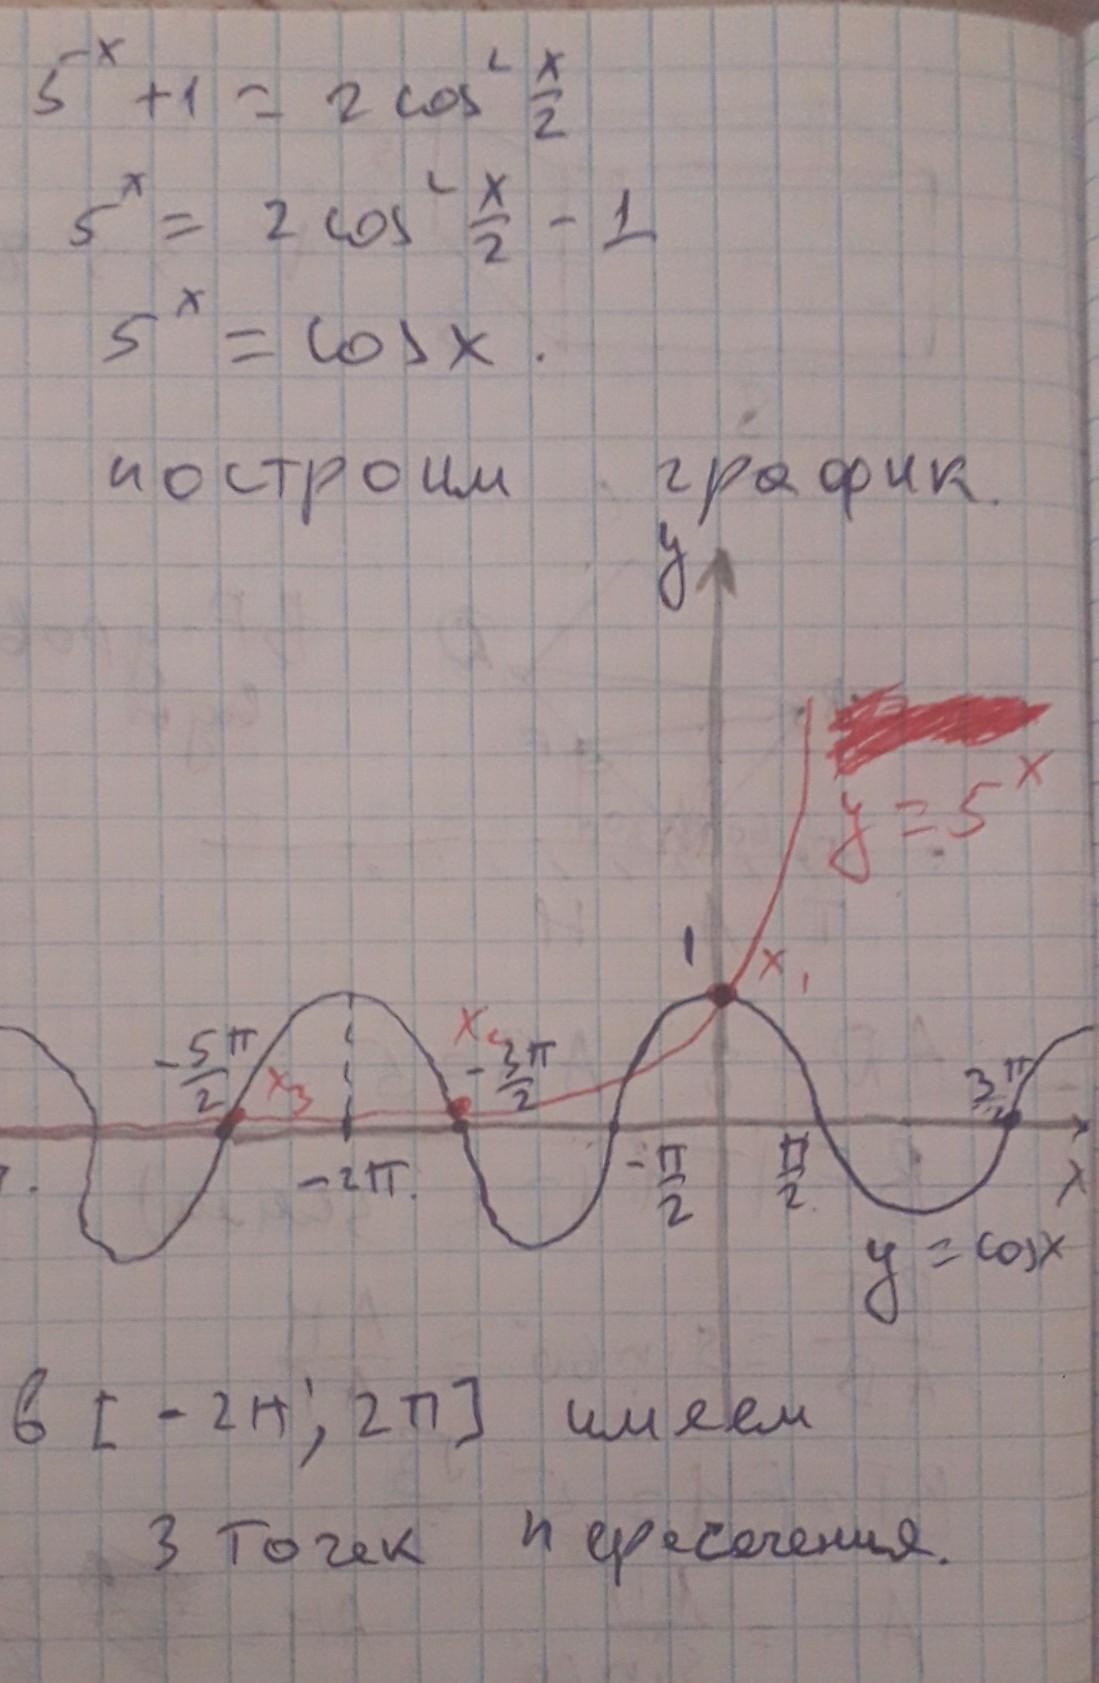 5^x + 1 = 2 cos² x/2
5^x = 2 cos² x/2 - 1
5^x = cos x.
построим график.
y
y = 5^x
1 x₁
-5π/2 x₃ x₂ -3π/2 3π/2
-2π. -π/2 π/2 x
y = cos x
в [-2π; 2π] имеем
3 точек пересечения.